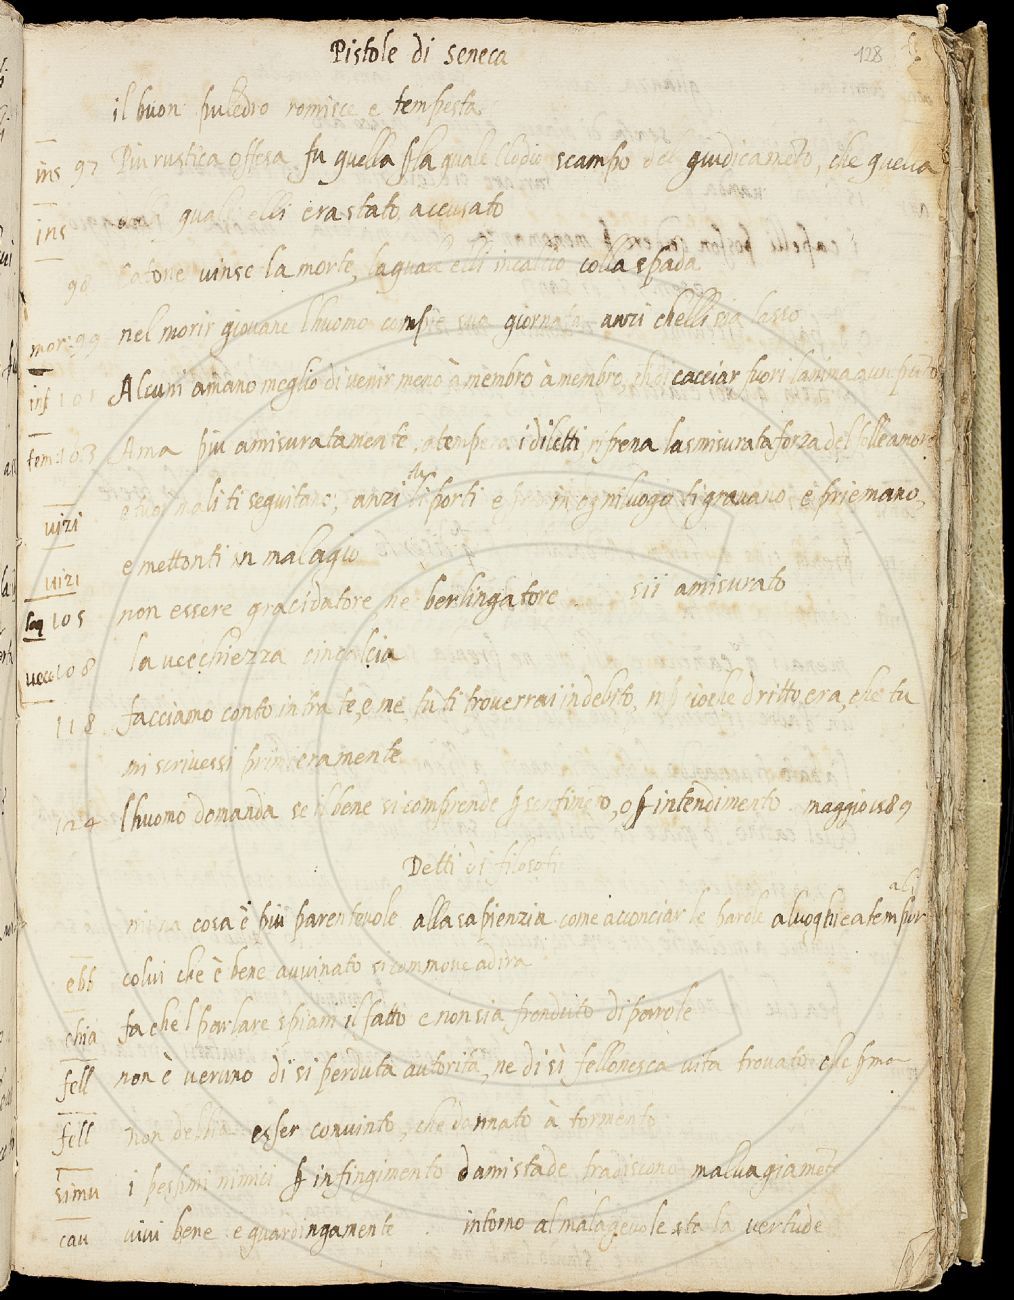 Pistole di Seneca
128
il buon puledro romisce e tempesta
ins 97 Piu rustica offesa fu quella p la quale Clodio scampo del giudicameto, che quella
ins quali elli era stato accusato
98 Catone vinse la morte, laquale elli incalcio colla spada
mor: 99 nel morir giovane lhuomo compie sua giornata, anzi chelli sia lasso
inf 101 Alcuni amano meglio di venir meno à membro à membro, che cacciar fuori lanima a un punto
tem: 103 Ama piu amisuratamente, atempera i diletti, rifrena lasmisurata forza del folle amor
tu
vizi e tuoi mali ti seguitano, anzi li porti e in ogni luogo ti gravano e priemano,
vizi e mettonti in malagio
loq 105 non essere gracidatore ne berlingatore sii amisurato
vecc 108 la vecchiezza cincalcia
118 facciamo conto intra te, e me, tu ti troverrai indebito, m p cioche dritto era, che tu
mi scrivessi primieramente
124 lhuomo domanda se il bene si comprende p sentimeto, o p intendimento maggio 1589
Detti di filosofi
ali
niuna cosa è piu parentevole alla sapienzia come acconciar le parole a luoghi e a tempor
ebb colui che è bene avvinato si commove ad ira
chia fa che l parlare spiani il fatto e non sia perduto di parole
fell non è veruno di si perduta autorita, ne di sì fellonesca vita trovato che pma
fell non debbia esser convinto, che dannato à tormento
simu i pessimi nimici p infingimento damistade tradiscono malvagiamete
cau vivi bene e guardingamente intorno al malagevole sta la vertude